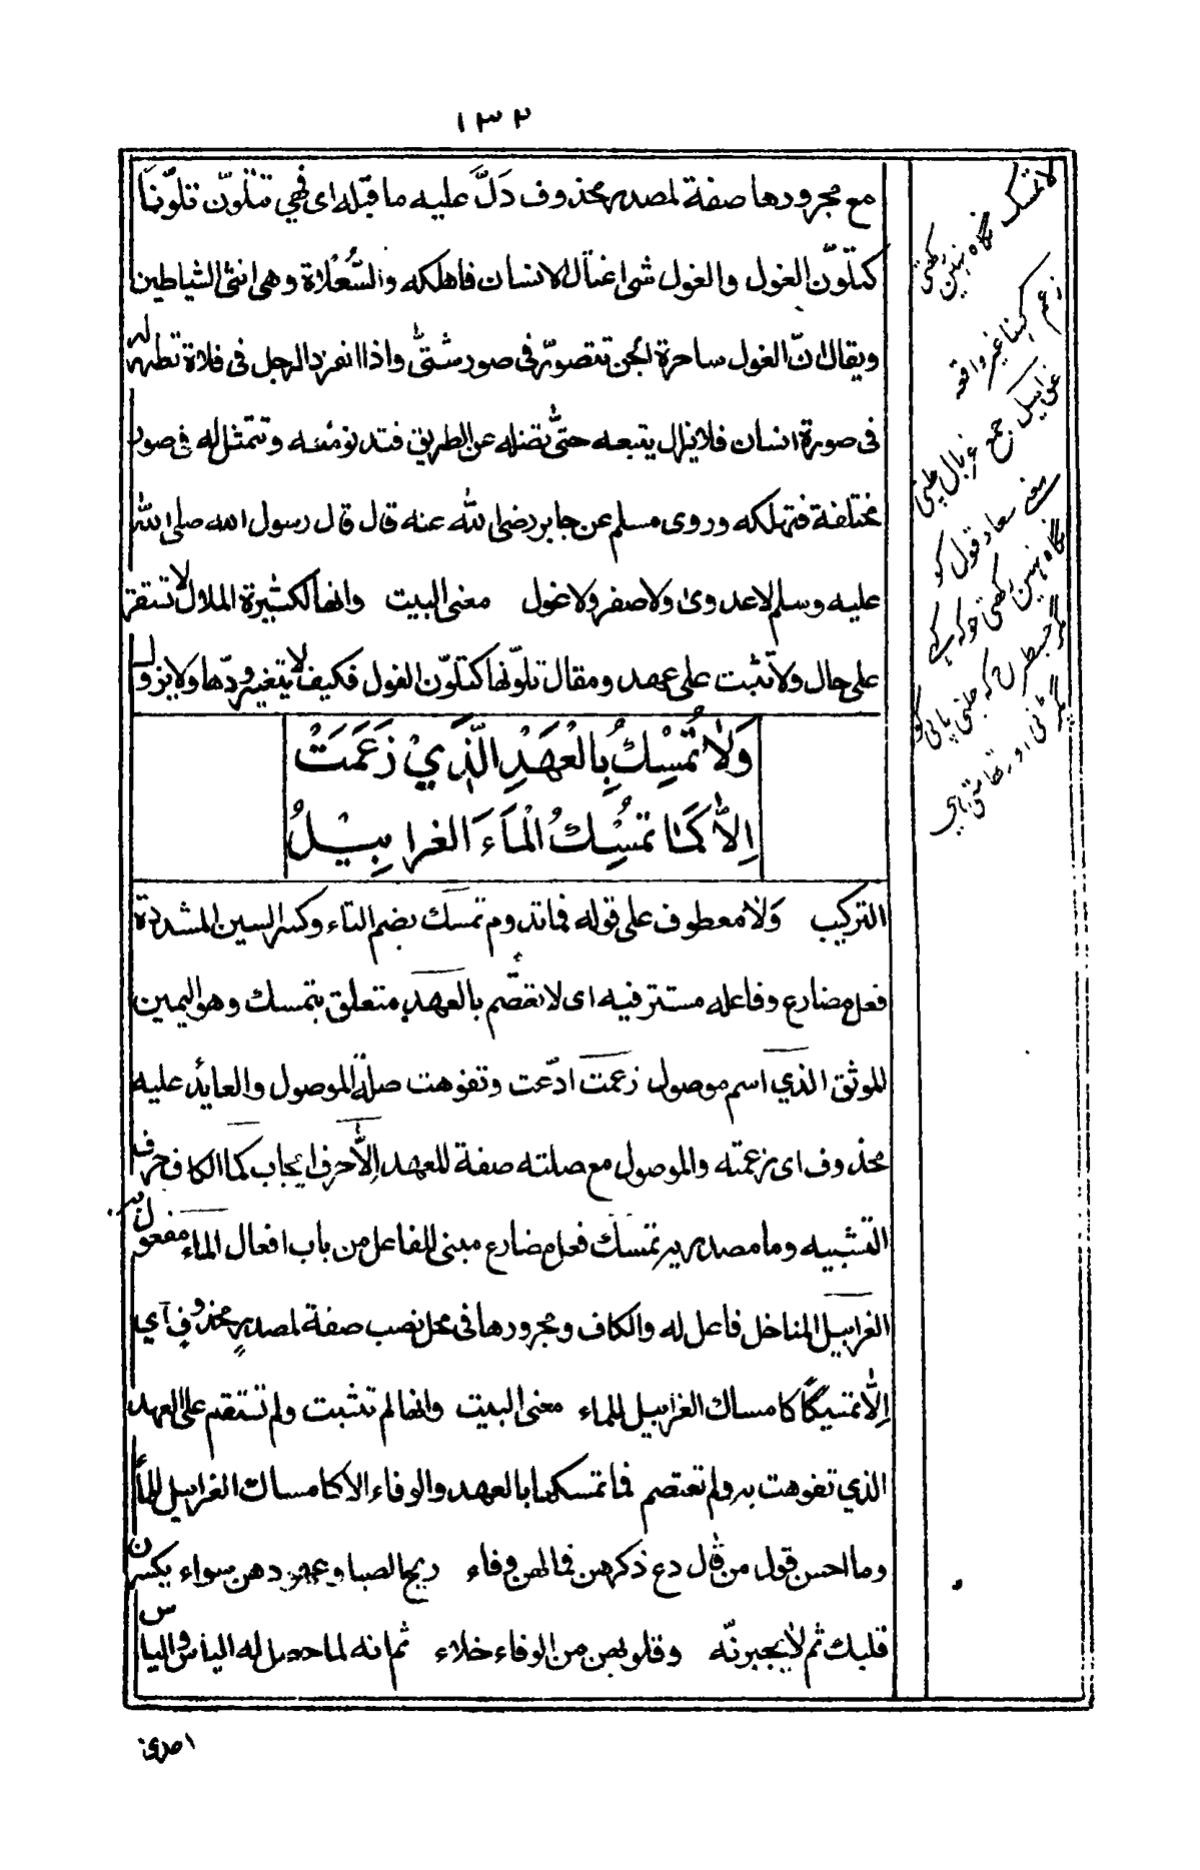 ١٣٢
مع مجرورها صفة لمصدر محذوف دَلَّ عليه ما قبله اى فهي تتلوّن تلوّنًا
كتلوّن الغول والغول شىء اغتال الانسان فاهلكه والسُّعْلاة وهى انثى الشياطين
ويقال انّ الغول ساحرة الجن تتصوّر فى صور شتّٰى واذا انفرد الرجل فى فلاة تظهر له
فى صورة انسان فلا يزال يتبعه حتّٰى تضله عن الطريق فتدنو منه وتتمثل له فى صور
مختلفة فتهلكه وروى مسلم عن جابر رضى الله عنه قال قال رسول الله صلى الله
عليه وسلم لا عدوىٰ ولا صفر ولا غول معنى البيت وانها لكثيرة الملال لا تستقر
على حال ولا تثبت على عهد ومقال تلوّنها كتلوّن الغول فكيف لا يتغير ودّها ولا يزول
وَلَا تُمَسِّكُ بِالْعَهْدِ الَّذِيْ زَعَمَتْ
اِلَّا كَمَا تُمْسِكُ الْمَاءَ الغرابِيْلُ
التركيب وَلَا معطوف على قوله فما تدوم تمسك بضم التاء وكسر السين المشددة
فعل مضارع وفاعله مستتر فيه اى لا تعتصم بالعهد متعلق بتمسك وهو اليمين
الموثق الذي اسم موصول زعمت ادّعت وتفوهت صلة الموصول والعايد عليه
محذوف اى زعمته والموصول مع صلته صفة للعهد اِلَّا حرف ايجاب كما الكاف حرف
التشبيه وما مصدريه تمسك فعل مضارع مبنى للفاعل من باب افعال الماء مفعول به
الغرابيل المناخل فاعل له والكاف ومجرورها فى محل نصب صفة لمصدرٍ محذوف اي
اِلّا تمسيكًا كامساك الغرابيل للماء معنى البيت وانها لم تثبت ولم تستقم على العهد
الذي تفوهت به ولم تعتصم فما تمسكها بالعهد والوفاء الا كامساك الغرابيل للماء
وما احسن قول من قال دع ذكرهن فما لهن وفاء ريح الصبا وعهودهن سواء يكسرن
قلبك ثم لا يجبرنّه وقلوبهن من الوفاء خلاء ثم انه لما حصل له الياس والياس
احدى
لا تمسك نگاہ نہین رکھتی
زعم کہنا غیر واقعہ
غرابیل جمع غربال چلنی
معنے سعاد قول کو
نگاہ نہین رکھتی جو کہ کہے
مگر جسطرح کہ چلنی پانی کو